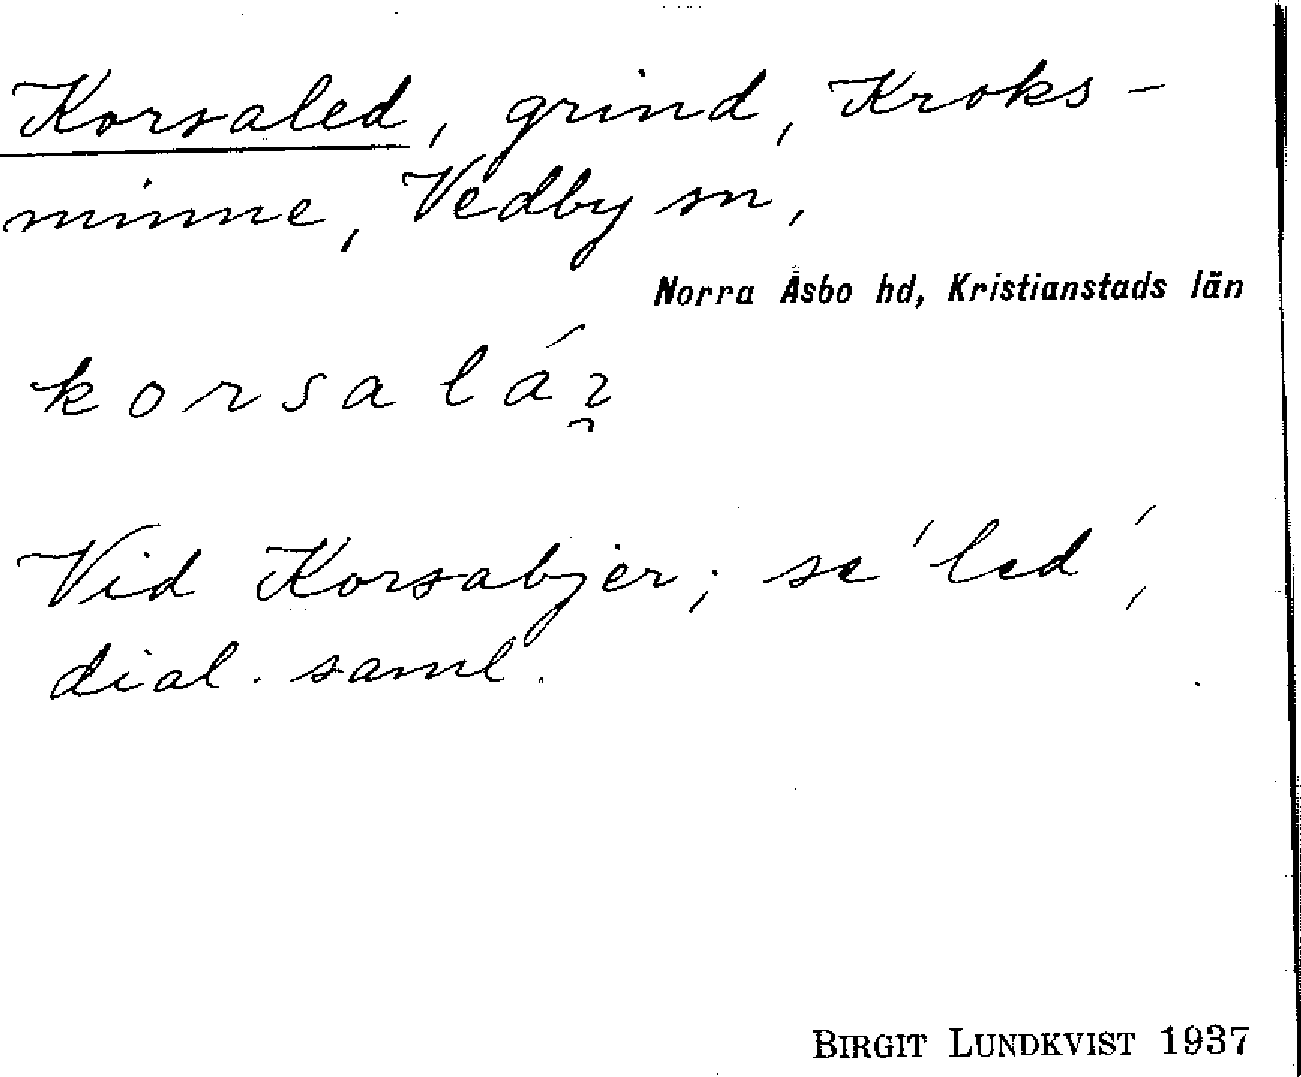 Korsaled, grind, Kroks-
minne, Vedby sn,
Norra Åsbo hd, Kristianstads län
korsalá
Vid Korsabjer; se 'led',
dial. saml.
BIRGIT LUNDKVIST 1937